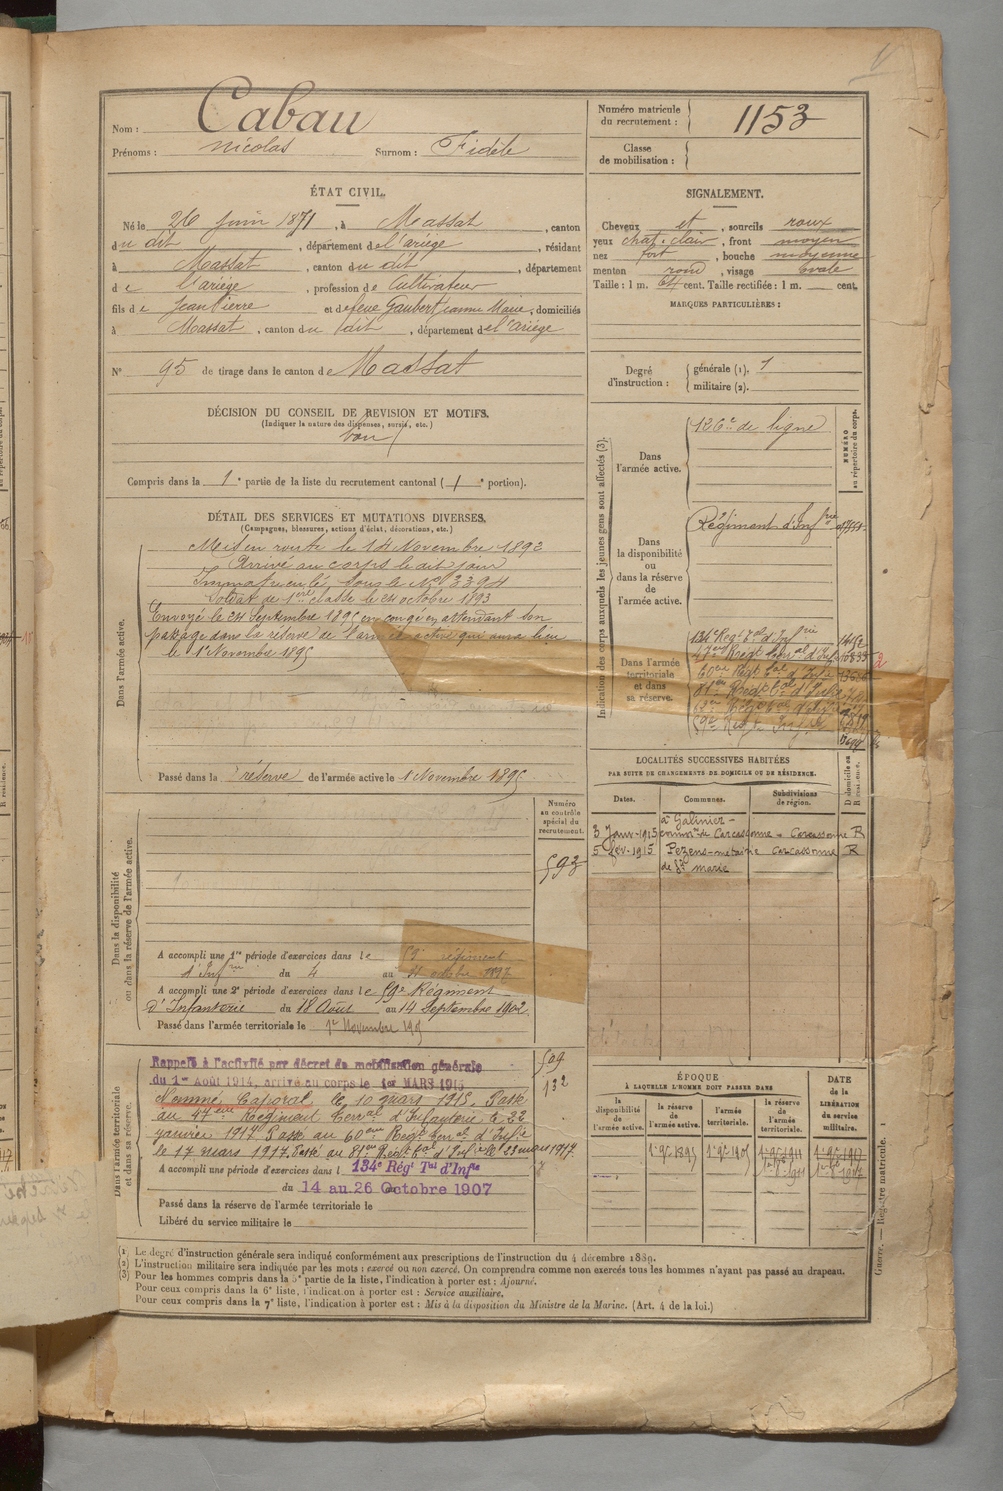 Nom : Cabau
Prénoms : Nicolas Surnom : Fidèle
Numéro matricule du recrutement : 1153
Classe de mobilisation :
ÉTAT CIVIL.
Né le 26 Juin 1871, à Massat, canton
du dit, département de l'ariège, résidant
à Massat, canton du dit, département
de l'ariège, profession de Cultivateur
fils de Jean Pierre et de feue Gaubert Jeanne Marie, domiciliés
à Massat, canton du dit, département de l'Ariège
N° 95 de tirage dans le canton de Massat
DÉCISION DU CONSEIL DE REVISION ET MOTIFS.
(Indiquer la nature des dispenses, sursis, etc.)
bon
Compris dans la 1e partie de la liste du recrutement cantonal (1e portion).
SIGNALEMENT.
Cheveux et, sourcils roux
yeux chat. clair, front moyen
nez fort, bouche moyenne
menton rond, visage ovale
Taille : 1 m. 64 cent. Taille rectifiée : 1 m. — cent.
MARQUES PARTICULIÈRES :
Degré d'instruction : générale (1). 1
militaire (2).
DÉTAIL DES SERVICES ET MUTATIONS DIVERSES.
(Campagnes, blessures, actions d'éclat, décorations, etc.)
Dans l'armée active.
Mis en route le 14 Novembre 1892
Arrivé au corps le dit jour
Immatriculé sous le N° 3394
Soldat de 1ère classe le 24 octobre 1893
Envoyé le 24 Septembre 1895 en congé en attendant son
passage dans la réserve de l'armée active qui aura lieu
le 1er Novembre 1895
Passé dans la réserve de l'armée active le 1er Novembre 1895
Indication des corps auxquels les jeunes gens sont affectés (3).
NUMÉRO au répertoire du corps.
Dans l'armée active.
126e de ligne
Dans la disponibilité ou dans la réserve de l'armée active.
Régiment d'Infrie
Dans l'armée territoriale et dans sa réserve.
134e Regt Tal d'Infrie
47eme Regt Terral d'Infie
60eme Regt Tal d'Infie
81eme Regt Tal d'Infie
LOCALITÉS SUCCESSIVES HABITÉES
PAR SUITE DE CHANGEMENTS DE DOMICILE OU DE RÉSIDENCE.
Dates. Communes. Subdivisions de région. Domicile ou Résidence.
à Galinier -
3 Janv-1915 comne de Carcassonne - Carcassonne R
5 fév-1915 Pezens-métairie Carcassonne R
de Ste marie
Numéro au contrôle spécial du recrutement.
593
Dans la disponibilité ou dans la réserve de l'armée active.
A accompli une 1re période d'exercices dans le 59e régiment
d'Infrie du 4 au 31 octobre 1897
A accompli une 2e période d'exercices dans le 59e Régiment
d'Infanterie du 18 Août au 14 Septembre 1902.
Passé dans l'armée territoriale le 1er Novembre 1905
Dans l'armée territoriale et dans sa réserve.
509
132
Rappelé à l'activité par décret de mobilisation générale
du 1er Août 1914, arrivé au corps le 1er MARS 1915
Nommé Caporal le 10 mars 1915. Passé
au 47eme Régiment Terral d'Infanterie le 22
janvier 1917. Passé au 60eme Regt Terral d'Infie
le 17 mars 1917. Passé au 81e Regt Tal d'Infie le 23 mars 1917.
A accompli une période d'exercices dans l 134e Régt Tal d'Infie
du 14 au 26 Octobre 1907
Passé dans la réserve de l'armée territoriale le
Libéré du service militaire le
ÉPOQUE
À LAQUELLE L'HOMME DOIT PASSER DANS
la disponibilité de l'armée active. la réserve de l'armée active. l'armée territoriale. la réserve de l'armée territoriale.
DATE DE LA LIBÉRATION du service militaire.
1er 9bre 1895 1er 9bre 1905 1er 9bre 1911 1er 9bre 1917
(1) Le degré d'instruction générale sera indiqué conformément aux prescriptions de l'instruction du 4 décembre 1889.
(2) L'instruction militaire sera indiquée par les mots : exercé ou non exercé. On comprendra comme non exercés tous les hommes n'ayant pas passé au drapeau.
(3) Pour les hommes compris dans la 5e partie de la liste, l'indication à porter est : Ajourné.
Pour ceux compris dans la 6e liste, l'indication à porter est : Service auxiliaire.
Pour ceux compris dans la 7e liste, l'indication à porter est : Mis à la disposition du Ministre de la Marine. (Art. 4 de la loi.)
Guerre. — Registre matricule. 1